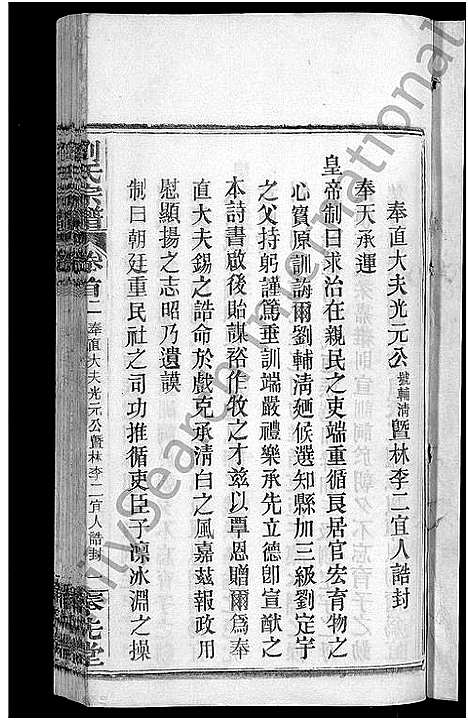 奉直大夫光元公號輔清暨林李二宜人誥封
奉天承運
皇帝制曰求治在親民之吏端重循良居官宏育物之
心實原訓誨爾劉輔清廼候選知縣加三級劉定宇
之父持躬謹篤垂訓端嚴禮樂承先立德卽宣猷之
本詩書啟後貽謀裕作牧之才兹以覃恩贈爾爲奉
直大夫錫之誥命於戲克承清白之風嘉兹報政用
慰顯揚之志昭乃遺謨
制曰朝廷重民社之司功推循吏臣子凛冰淵之操
劉氏宗譜 卷首二 奉直大夫光元公暨林李二宜人誥封 一